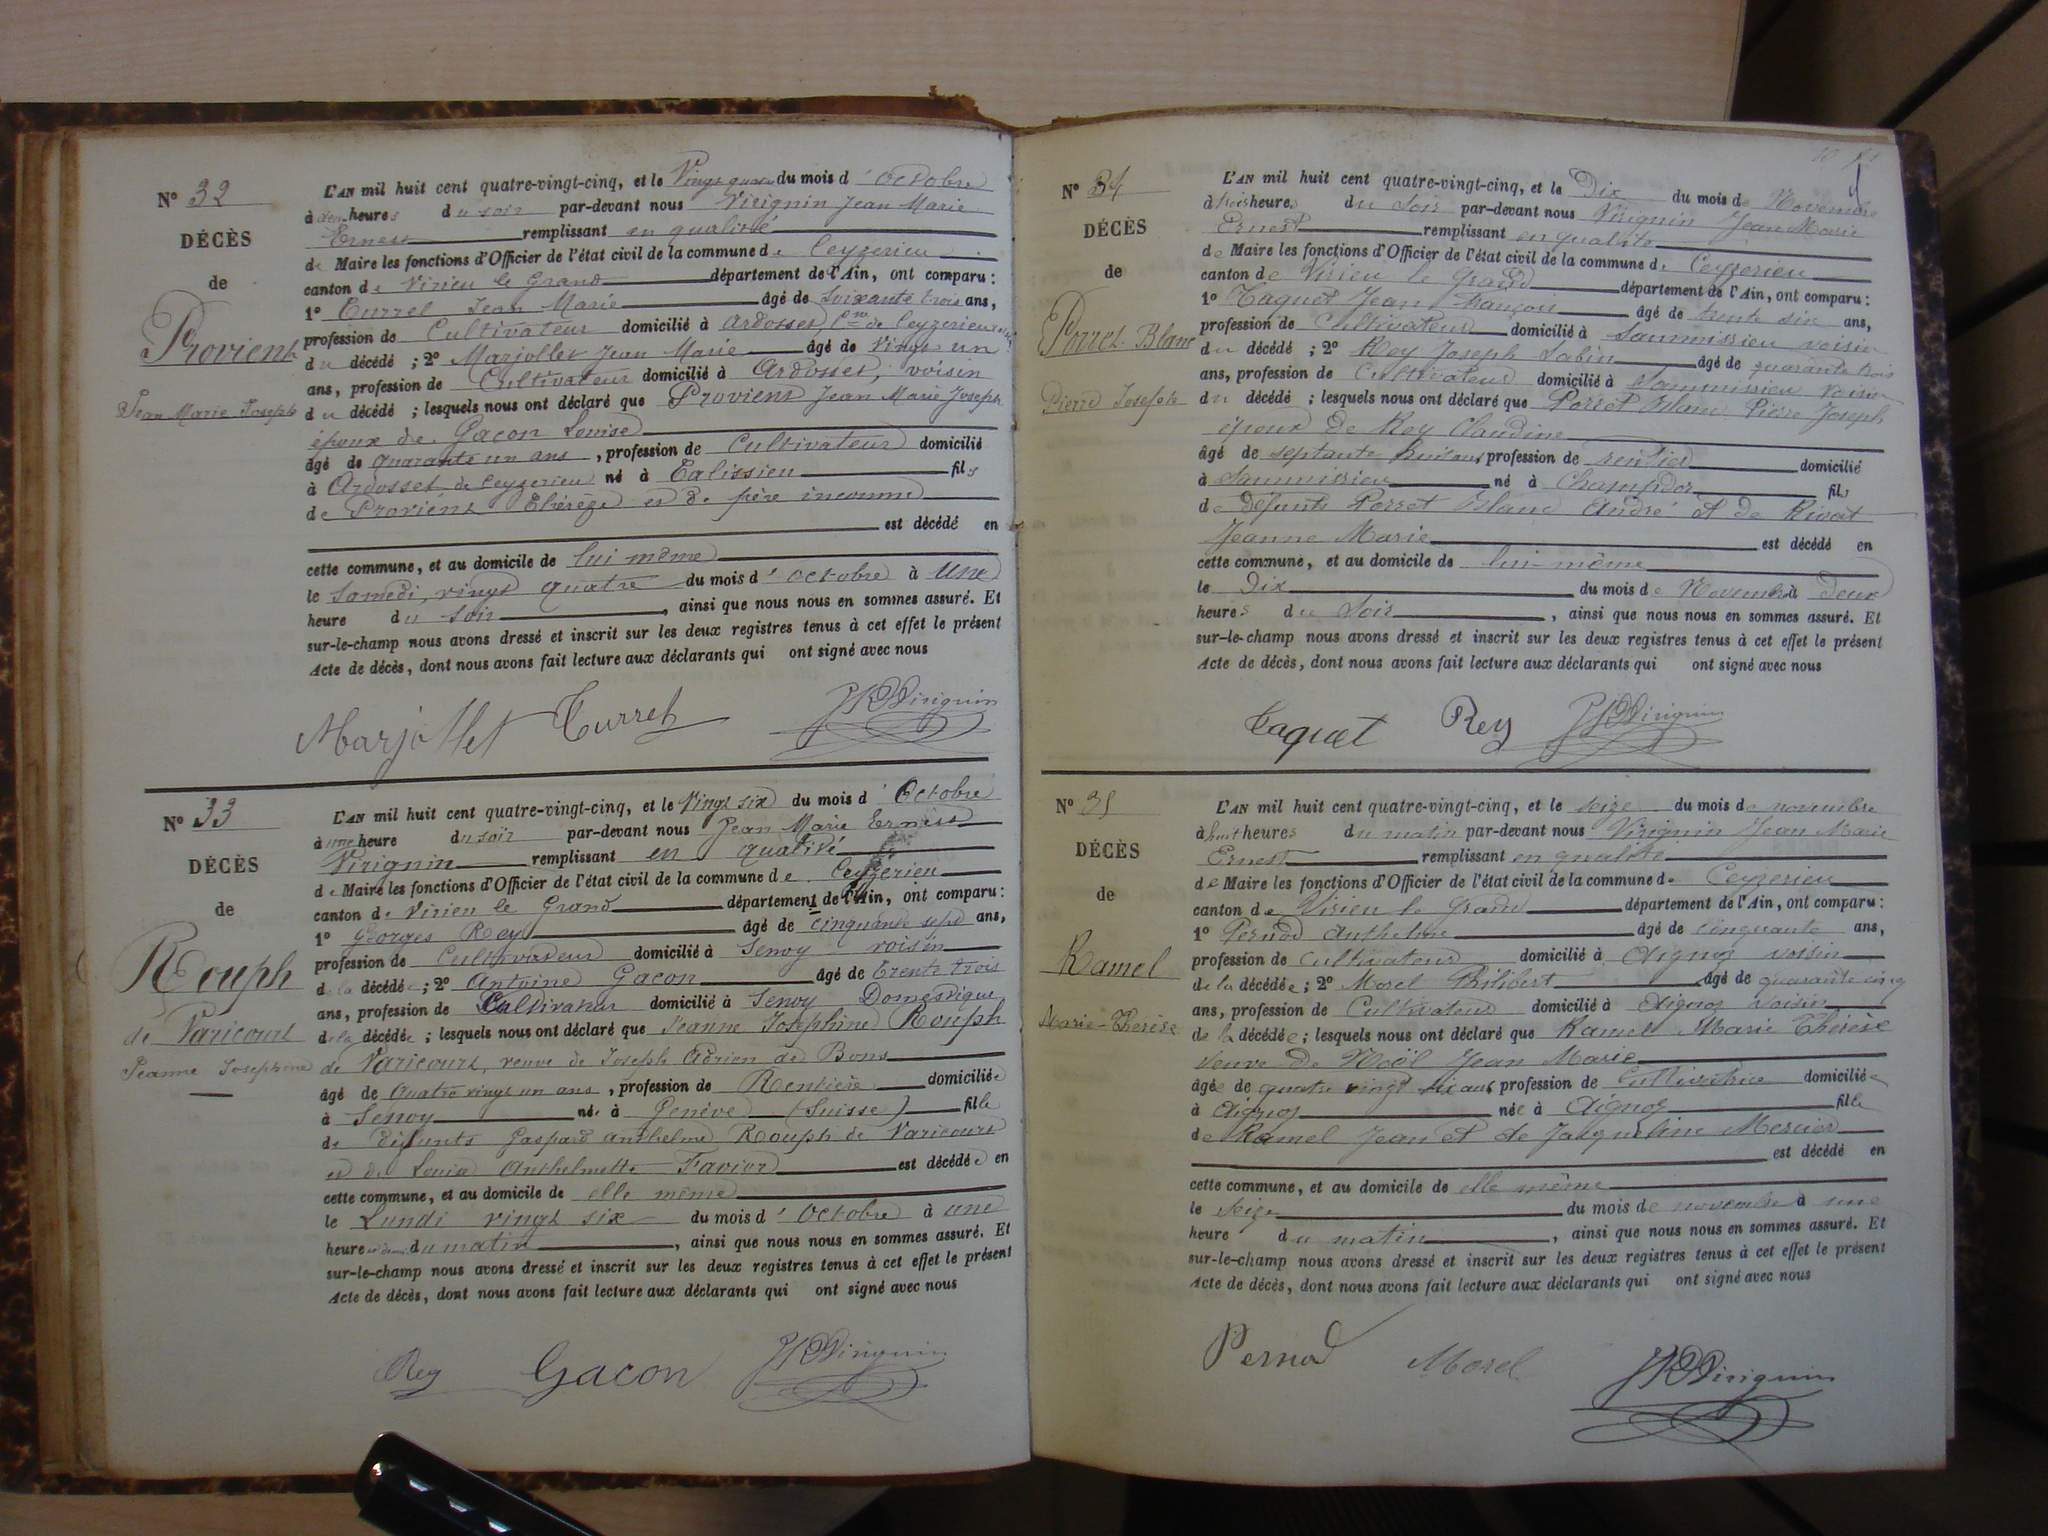 N° 32
DÉCÈS
de
Provient
Jean Marie Joseph
L'AN mil huit cent quatre-vingt-cinq, et le Vingt quatre du mois d'Octobre
à deux heures du soir par-devant nous Virignin Jean Marie
Ernest remplissant en qualité
de Maire les fonctions d'Officier de l'état civil de la commune de Ceyzerieu
canton de Virieu le Grand département de l'Ain, ont comparu :
1° Turrel Jean Marie âgé de Soixante trois ans,
profession de Cultivateur domicilié à Ardosset, Cne de Ceyzerieu
du décédé ; 2° Marjollet Jean Marie âgé de vingt un
ans, profession de Cultivateur domicilié à Ardosset, voisin
du décédé ; lesquels nous ont déclaré que Provient Jean Marie Joseph
époux de Gacon Louise
âgé de quarante un ans, profession de Cultivateur domicilié
à Ardosset de Ceyzerieu né à Talissieu fils
de Provient Thérèze et de père inconnu
est décédé en
cette commune, et au domicile de lui même
le Samedi, vingt quatre du mois d'octobre à une
heure du soir, ainsi que nous nous en sommes assuré. Et
sur-le-champ nous avons dressé et inscrit sur les deux registres tenus à cet effet le présent
Acte de décès, dont nous avons fait lecture aux déclarants qui ont signé avec nous
Marjollet Turrel Virignin
N° 33
DÉCÈS
de
Rouph
de Varicourt
Jeanne Josephine
L'AN mil huit cent quatre-vingt-cinq, et le Vingt six du mois d'Octobre
à une heure du soir par-devant nous Jean Marie Ernest
Virignin remplissant en qualité
de Maire les fonctions d'Officier de l'état civil de la commune de Ceyzerieu
canton de Virieu le Grand département de l'Ain, ont comparu :
1° Georges Rey âgé de cinquante sept ans,
profession de Cultivateur domicilié à Senoy voisin
de la décédée ; 2° Antoine Gacon âgé de trente trois
ans, profession de Cultivateur domicilié à Senoy Domestique
de la décédée ; lesquels nous ont déclaré que Jeanne Josephine Rouph
de Varicourt, veuve de Joseph Adrien de Bons
âgé de Quatre vingt un ans, profession de Rentière domiciliée
à Senoy née à Genève (Suisse) fille
de défunts Gaspard Anthelme Rouph de Varicourt
et de Louise Anthelmette Favier est décédée en
cette commune, et au domicile de elle même
le Lundi vingt six du mois d'Octobre à une
heure et demi du matin, ainsi que nous nous en sommes assuré. Et
sur-le-champ nous avons dressé et inscrit sur les deux registres tenus à cet effet le présent
Acte de décès, dont nous avons fait lecture aux déclarants qui ont signé avec nous
Rey Gacon Virignin
N° 34
DÉCÈS
de
Porret-Blanc
Pierre Joseph
L'AN mil huit cent quatre-vingt-cinq, et le Dix du mois de Novembre
à trois heures du Soir par-devant nous Virignin Jean Marie
Ernest remplissant en qualité
de Maire les fonctions d'Officier de l'état civil de la commune de Ceyzerieu
canton de Virieu le Grand département de l'Ain, ont comparu :
1° Taquet Jean François âgé de trente six ans,
profession de Cultivateur domicilié à Sammissieu voisin
du décédé ; 2° Rey Joseph Sabin âgé de quarante trois
ans, profession de Cultivateur domicilié à Sammissieu voisin
du décédé ; lesquels nous ont déclaré que Porret Blanc Pierre Joseph
époux de Rey Claudine
âgé de septante huit ans, profession de rentier domicilié
à Sammissieu né à Champdor fils
de défunts Porret Blanc André et de Rivat
Jeanne Marie est décédé en
cette commune, et au domicile de lui-même
le Dix du mois de Novembre à Deux
heures du Soir, ainsi que nous nous en sommes assuré. Et
sur-le-champ nous avons dressé et inscrit sur les deux registres tenus à cet effet le présent
Acte de décès, dont nous avons fait lecture aux déclarants qui ont signé avec nous
Taquet Rey Virignin
N° 35
DÉCÈS
de
Ramel
Marie-Thérèse
L'AN mil huit cent quatre-vingt-cinq, et le seize du mois de novembre
à huit heures du matin par-devant nous Virignin Jean Marie
Ernest remplissant en qualité
de Maire les fonctions d'Officier de l'état civil de la commune de Ceyzerieu
canton de Virieu le Grand département de l'Ain, ont comparu :
1° Pernod Anthelme âgé de cinquante ans,
profession de Cultivateur domicilié à Aignoz voisin
de la décédée ; 2° Morel Philibert âgé de quarante cinq
ans, profession de Cultivateur domicilié à Aignoz voisin
de la décédée ; lesquels nous ont déclaré que Ramel Marie Thérèse
veuve de Noël Jean Marie
âgée de quatre vingt six ans, profession de Cultivatrice domiciliée
à Aignoz née à Aignoz fille
de Ramel Jean et de Jacqueline Mercier
est décédé en
cette commune, et au domicile de elle même
le seize du mois de novembre à une
heure du matin, ainsi que nous nous en sommes assuré. Et
sur-le-champ nous avons dressé et inscrit sur les deux registres tenus à cet effet le présent
Acte de décès, dont nous avons fait lecture aux déclarants qui ont signé avec nous
Pernod Morel Virignin